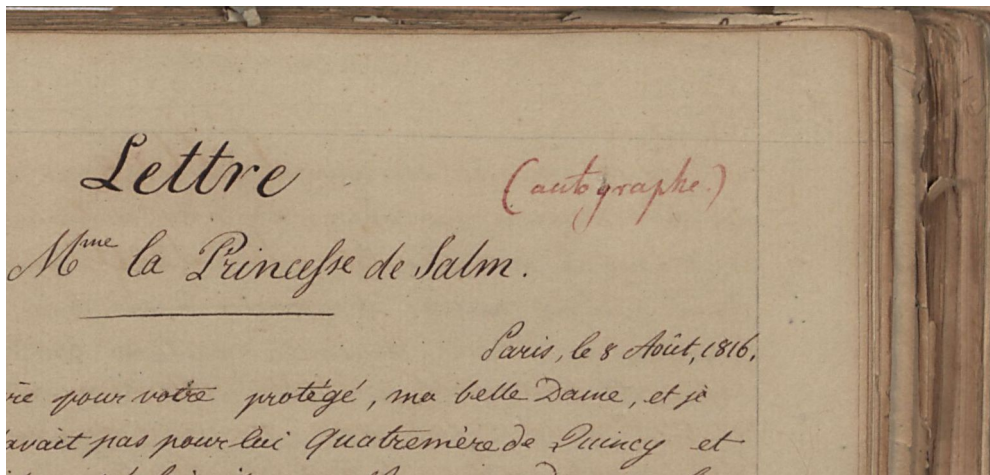 Lettre
(autographe.)
Mme la Princesse de Salm.
Paris, le 8 Août, 1816.
pour votre protégé, ma belle Dame, et je
avait pas pour lui Quatremère de Quincy et